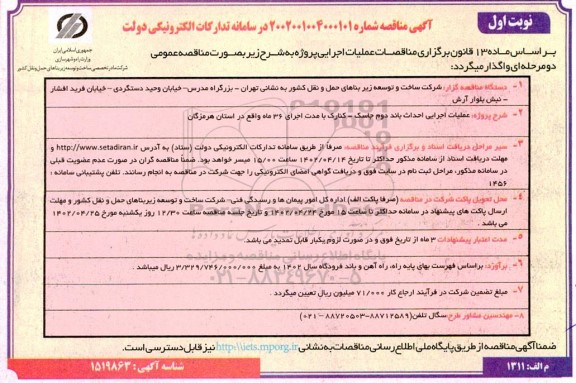 نوبت اول
آگهی مناقصه شماره ۲۰۰۲۰۰۱۰۰۴۰۰۰۱۰۱ در سامانه تدارکات الکترونیکی دولت
جمهوری اسلامی ایران
وزارت راه و شهرسازی
شرکت مادر تخصصی ساخت و توسعه زیربناهای حمل و نقل کشور
بر اساس ماده ۱۳ قانون برگزاری مناقصات عملیات اجرایی پروژه به شرح زیر بصورت مناقصه عمومی
دو مرحله ای واگذار میگردد:
۱- دستگاه مناقصه گزار: شرکت ساخت و توسعه زیر بناهای حمل و نقل کشور به نشانی تهران – بزرگراه مدرس- خیابان وحید دستگردی – خیابان فرید افشار
– نبش بلوار آرش
۲- شرح پروژه: عملیات اجرایی احداث باند دوم جاسک – کنارک با مدت اجرای ۳۶ ماه واقع در استان هرمزگان
۳- سیر مراحل دریافت اسناد و برگزاری فرآیند مناقصه: صرفاً از طریق سامانه تدارکات الکترونیکی دولت (ستاد) به آدرس http://www.setadiran.ir و
مهلت دریافت اسناد از سامانه مذکور حداکثر تا تاریخ ۱۴۰۲/۰۴/۱۴ ساعت ۱۵/۰۰ میسر خواهد بود. ضمناً مناقصه گران در صورت عدم عضویت قبلی
در سامانه مذکور، مراحل ثبت نام در سایت فوق و دریافت گواهی امضای الکترونیکی را جهت شرکت در مناقصه به انجام رسانند. تلفن پشتیبانی سامانه :
۱۴۵۶
۴- محل تحویل پاکت شرکت در مناقصه (صرفا پاکت الف) اداره کل امور پیمان ها و رسیدگی فنی- شرکت ساخت و توسعه زیربناهای حمل و نقل کشور و مهلت
ارسال پاکت های پیشنهاد در سامانه حداکثر تا ساعت ۱۵ مورخ ۱۴۰۲/۰۴/۲۴ و تاریخ جلسه مناقصه ساعت ۱۲/۳۰ روز یکشنبه مورخ ۱۴۰۲/۰۴/۲۵
می باشد .
۵- مدت اعتبار پیشنهادات ۳ ماه از تاریخ فوق و در صورت لزوم یکبار قابل تمدید می باشد.
۶- برآورد: براساس فهرست بهای پایه راه، راه آهن و باند فرودگاه سال ۱۴۰۲ به مبلغ ۳/۳۲۹/۷۴۶/۰۰۰/۰۰۰ ریال میباشد .
۷- مبلغ تضمین شرکت در فرآیند ارجاع کار ۷۱/۰۰۰ میلیون ریال تعیین میگردد.
۸- مهندسین مشاور طرح:سگال تلفن(۸۸۷۱۲۵۸۹-۸۸۷۲۰۵۰۳ – ۰۲۱)
ضمناً آگهی مناقصه از طریق پایگاه ملی اطلاع رسانی مناقصات به نشانی http://iets.mporg.ir نیز قابل دسترسی است.
م الف: ۱۳۱۱
شناسه آگهی: ۱۵۱۹۸۶۳